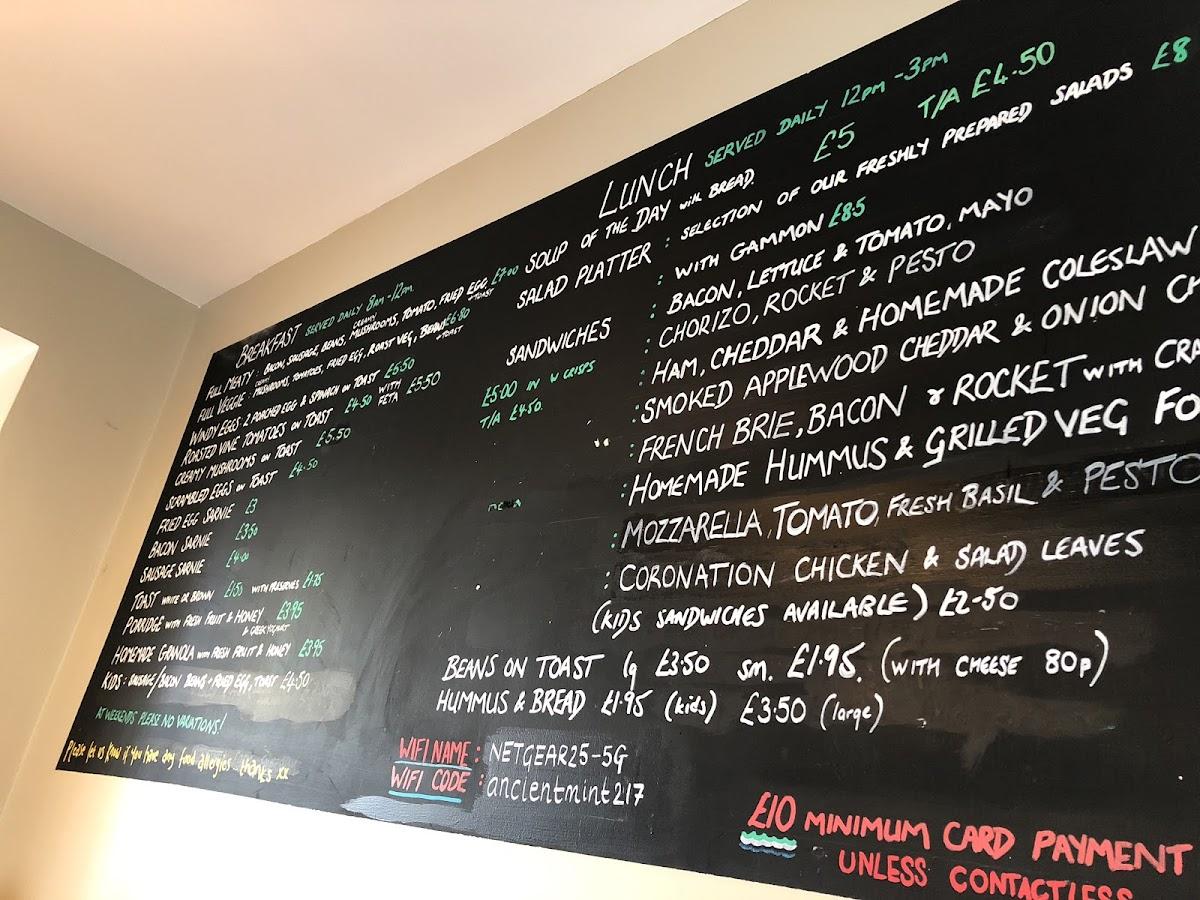 BREAKFAST SERVED DAILY 8am-12pm.
FULL MEATY: BACON, SAUSAGE, BEANS, CREAMY MUSHROOMS, TOMATO, FRIED EGG + TOAST £7.00
FULL VEGGIE: CREAMY MUSHROOMS, TOMATOES, FRIED EGG, ROAST VEG, BEANS + TOAST £6.80
WINDY EGGS: 2 POACHED EGG & SPINACH ON TOAST £6.50
ROASTED VINE TOMATOES ON TOAST £4.50 WITH FETA £5.50
CREAMY MUSHROOMS ON TOAST £5.50
SCRAMBLED EGGS ON TOAST £4.50
FRIED EGG SARNIE £3
BACON SARNIE £3.50
SAUSAGE SARNIE £4.00
TOAST WHITE OR BROWN £1.50 WITH PRESERVES £1.75
PORRIDGE WITH FRESH FRUIT & HONEY £3.95
& GREEK YOGURT
HOMEMADE GRANOLA WITH FRESH FRUIT & HONEY £3.95
KIDS: SAUSAGE/BACON BEANS + FRIED EGG, TOAST £4.50
AT WEEKENDS PLEASE NO VARIATIONS!
Please let us know if you have any food allergies thanks xx
LUNCH SERVED DAILY 12pm-3pm
SOUP OF THE DAY with BREAD. £5 T/A £4.50
SALAD PLATTER : SELECTION OF OUR FRESHLY PREPARED SALADS £8
: WITH GAMMON £8.5
SANDWICHES : BACON, LETTUCE & TOMATO, MAYO
£5.00 IN W CRISPS
T/A £4.50.
: CHORIZO, ROCKET & PESTO
: HAM, CHEDDAR & HOMEMADE COLESLAW
: SMOKED APPLEWOOD CHEDDAR & ONION
: FRENCH BRIE, BACON & ROCKET WITH
: HOMEMADE HUMMUS & GRILLED VEG
: MOZZARELLA, TOMATO, FRESH BASIL & PESTO
: CORONATION CHICKEN & SALAD LEAVES
(KIDS SANDWICHES AVAILABLE) £2-50
BEANS ON TOAST lg £3.50 sm. £1.95. (WITH CHEESE 80p)
HUMMUS & BREAD £1.95 (kids) £3.50 (large)
WIFI NAME: NETGEAR25-5G
WIFI CODE: ancientmint217
£10 MINIMUM CARD PAYMENT
UNLESS CONTACTLESS